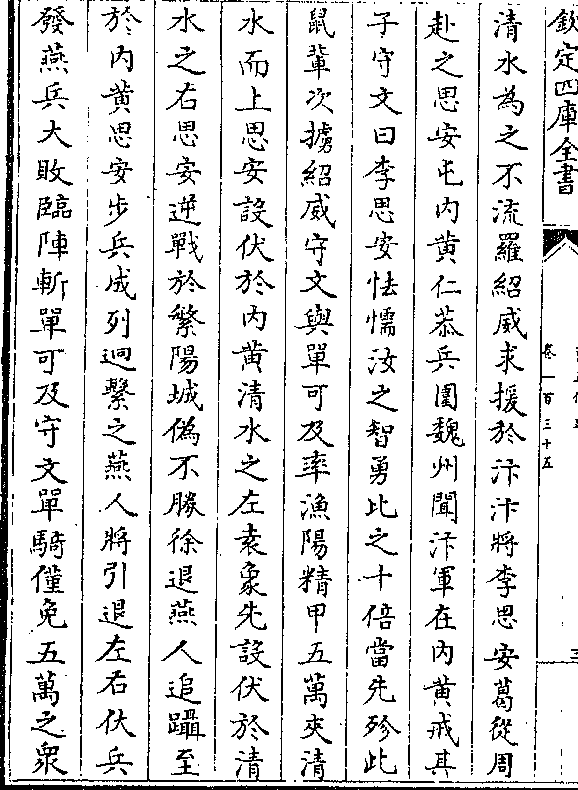 欽定四庫全書
卷一百三十五
清水為之不流羅紹威求援於汴汴將李思安葛從周
赴之思安屯内黄仁恭兵圍魏州聞汴軍在内黄戒其
子守文曰李思安怯懦汝之智勇比之十倍當先殄此
鼠輩次擄紹威守文與單可及率漁陽精甲五萬夾清
水而上思安設伏於内黄清水之左袁象先設伏於清
水之右思安逆戰於繁陽城偽不勝徐退燕人追躡至
於内黄思安步兵成列迴擊之燕人將引退左右伏兵
發燕兵大敗臨陣斬單可及守文單騎僅免五萬之衆